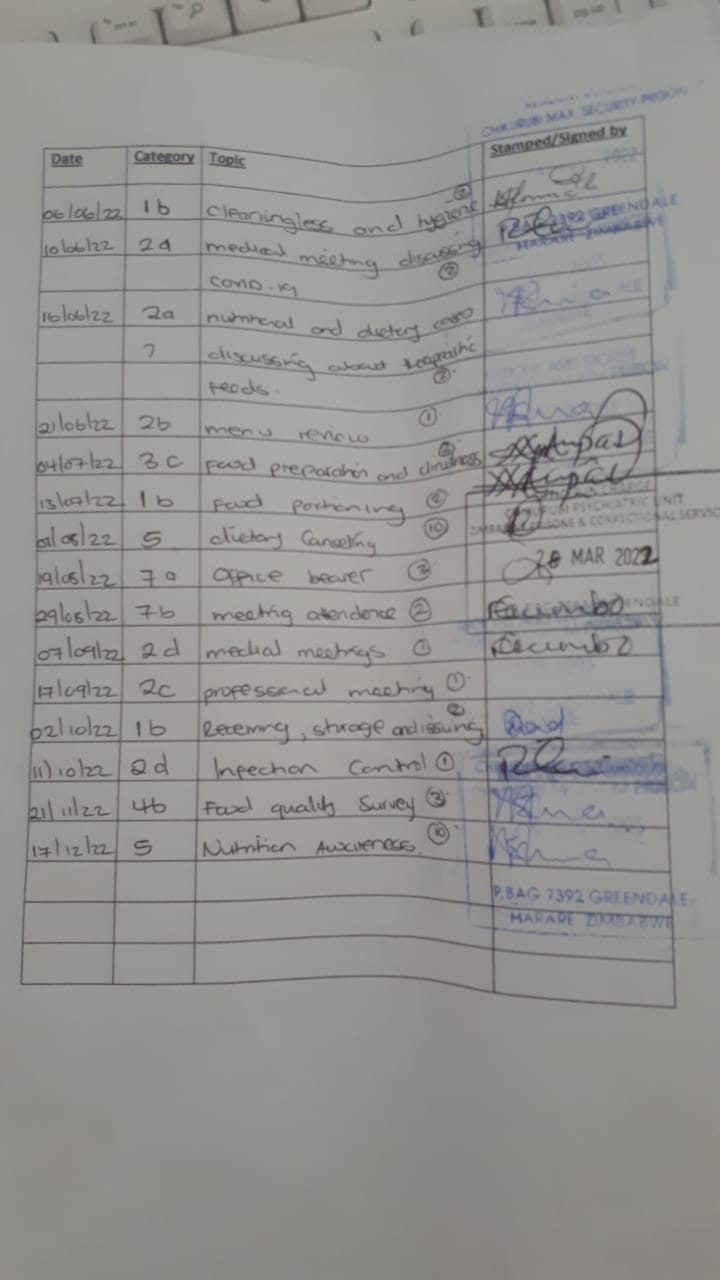 CHIKURUBI MAX SECURITY PRISON
Date Category Topic Stamped/Signed by
2022
06/06/22 1b clearingless and hygiene (2)
P.BAG 7392 GREENDALE
HARARE ZIMBABWE
10/06/22 2a medical meeting discussing
COVID-19 (2)
16/06/22 2a nutritional and dietary
7 discussing about
feeds. (2)
21/06/22 2b menu review (1)
04/07/22 3c Food preparation and (2)
13/07/22 1b Food portioning (2)
CHIKURUBI PSYCHIATRIC UNIT
ZIMBABWE PRISONS & CORRECTIONAL SERVIC
5 dietary Canseling (10)
28 MAR 2022
7a office bearer (2)
29/08/22 7b meeting attendence (2)
07/09/22 2d medial meetings (1)
17/09/22 2c professional meeting (1)
02/10/22 1b Receming, storage and issuing (2)
11/10/22 2d Infection Control (1)
21/11/22 4b Food quality Survey (3)
17/12/22 5 Nutrition Awareness. (10)
P.BAG 7392 GREENDALE
HARARE ZIMBABWE